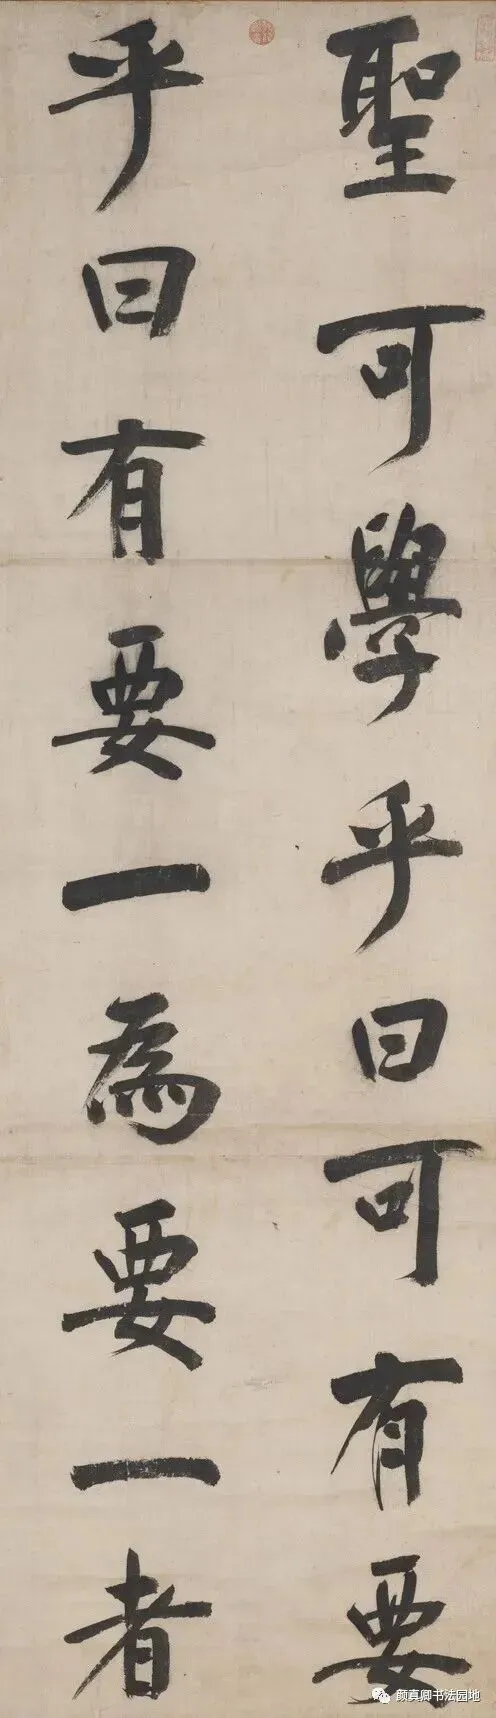 聖可學乎曰可有要
乎曰有要一為要一者
颜真卿书法园地